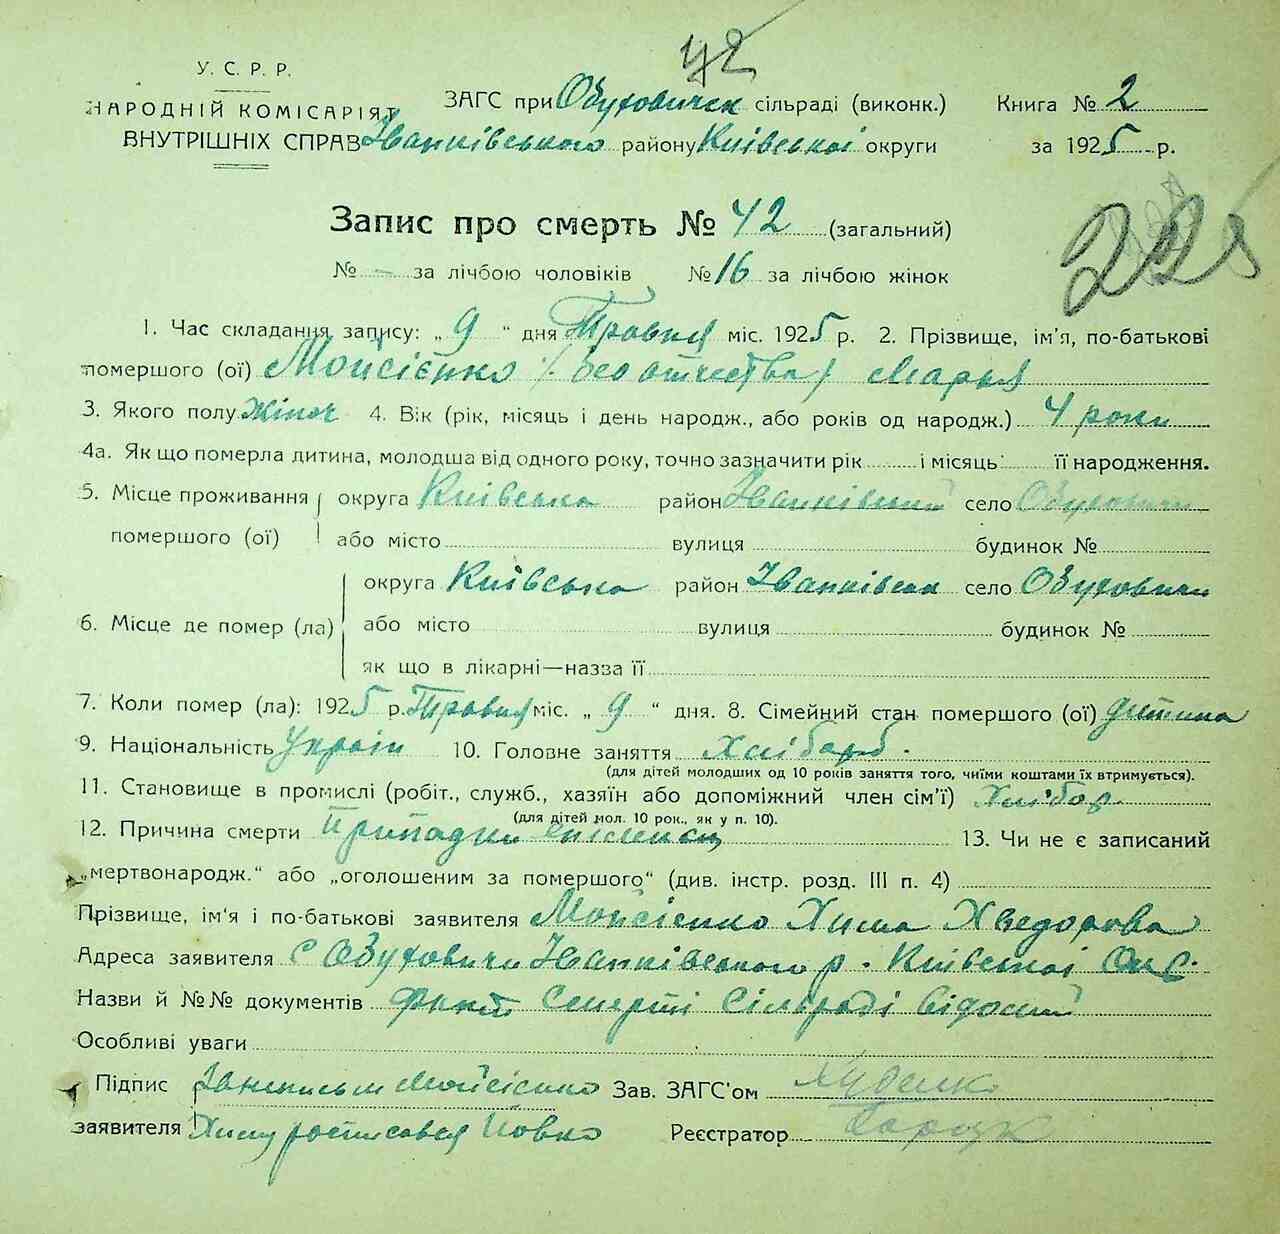 42
У. С. Р. Р.
НАРОДНІЙ КОМІСАРІЯТ
ВНУТРІШНІХ СПРАВ
ЗАГС при Обуховичск сільраді (виконк.) Книга № 2
Іванківського району Київської округи за 1925 р.
Запис про смерть № 42 (загальний)
225
№ - за лічбою чоловіків № 16 за лічбою жінок
1. Час складання запису: „9“ дня Травня міс. 1925 р. 2. Прізвище, ім'я, по-батькові
помершого (ої) Мойсієнко / без отчества / Марья
3. Якого полу Жіноч 4. Вік (рік, місяць і день народж., або років од народж.) 4 роки
4а. Як що померла дитина, молодша від одного року, точно зазначити рік і місяць її народження.
5. Місце проживання помершого (ої) округа Київська район Іванківський село Обуховичи
або місто вулиця будинок №
6. Місце де помер (ла) округа Київська район Іванківськ село Обуховичи
або місто вулиця будинок №
як що в лікарні—назва її
7. Коли помер (ла): 1925 р. Травня міс. „9“ дня. 8. Сімейний стан помершого (ої) дитина
9. Національність Україн 10. Головне заняття Хлібороб.
(для дітей молодших од 10 років заняття того, чиїми коштами їх втримується).
11. Становище в промислі (робіт., служб., хазяїн або допоміжний член сім'ї) Хлібор.
(для дітей мол. 10 рок., як у п. 10).
12. Причина смерти Припадки 13. Чи не є записаний
„мертвонародж.“ або „оголошеним за помершого“ (див. інстр. розд. III п. 4)
Прізвище, ім'я і по-батькові заявителя Мойсієнко Хима Хведорова
Адреса заявителя с Обуховичи Іванківського р. Київської Окр.
Назви й №№ документів факт Смерті Сільраді відомий
Особливі уваги
Підпис Мойсієнко Зав. ЗАГС'ом
заявителя Химу росписовся Реєстратор